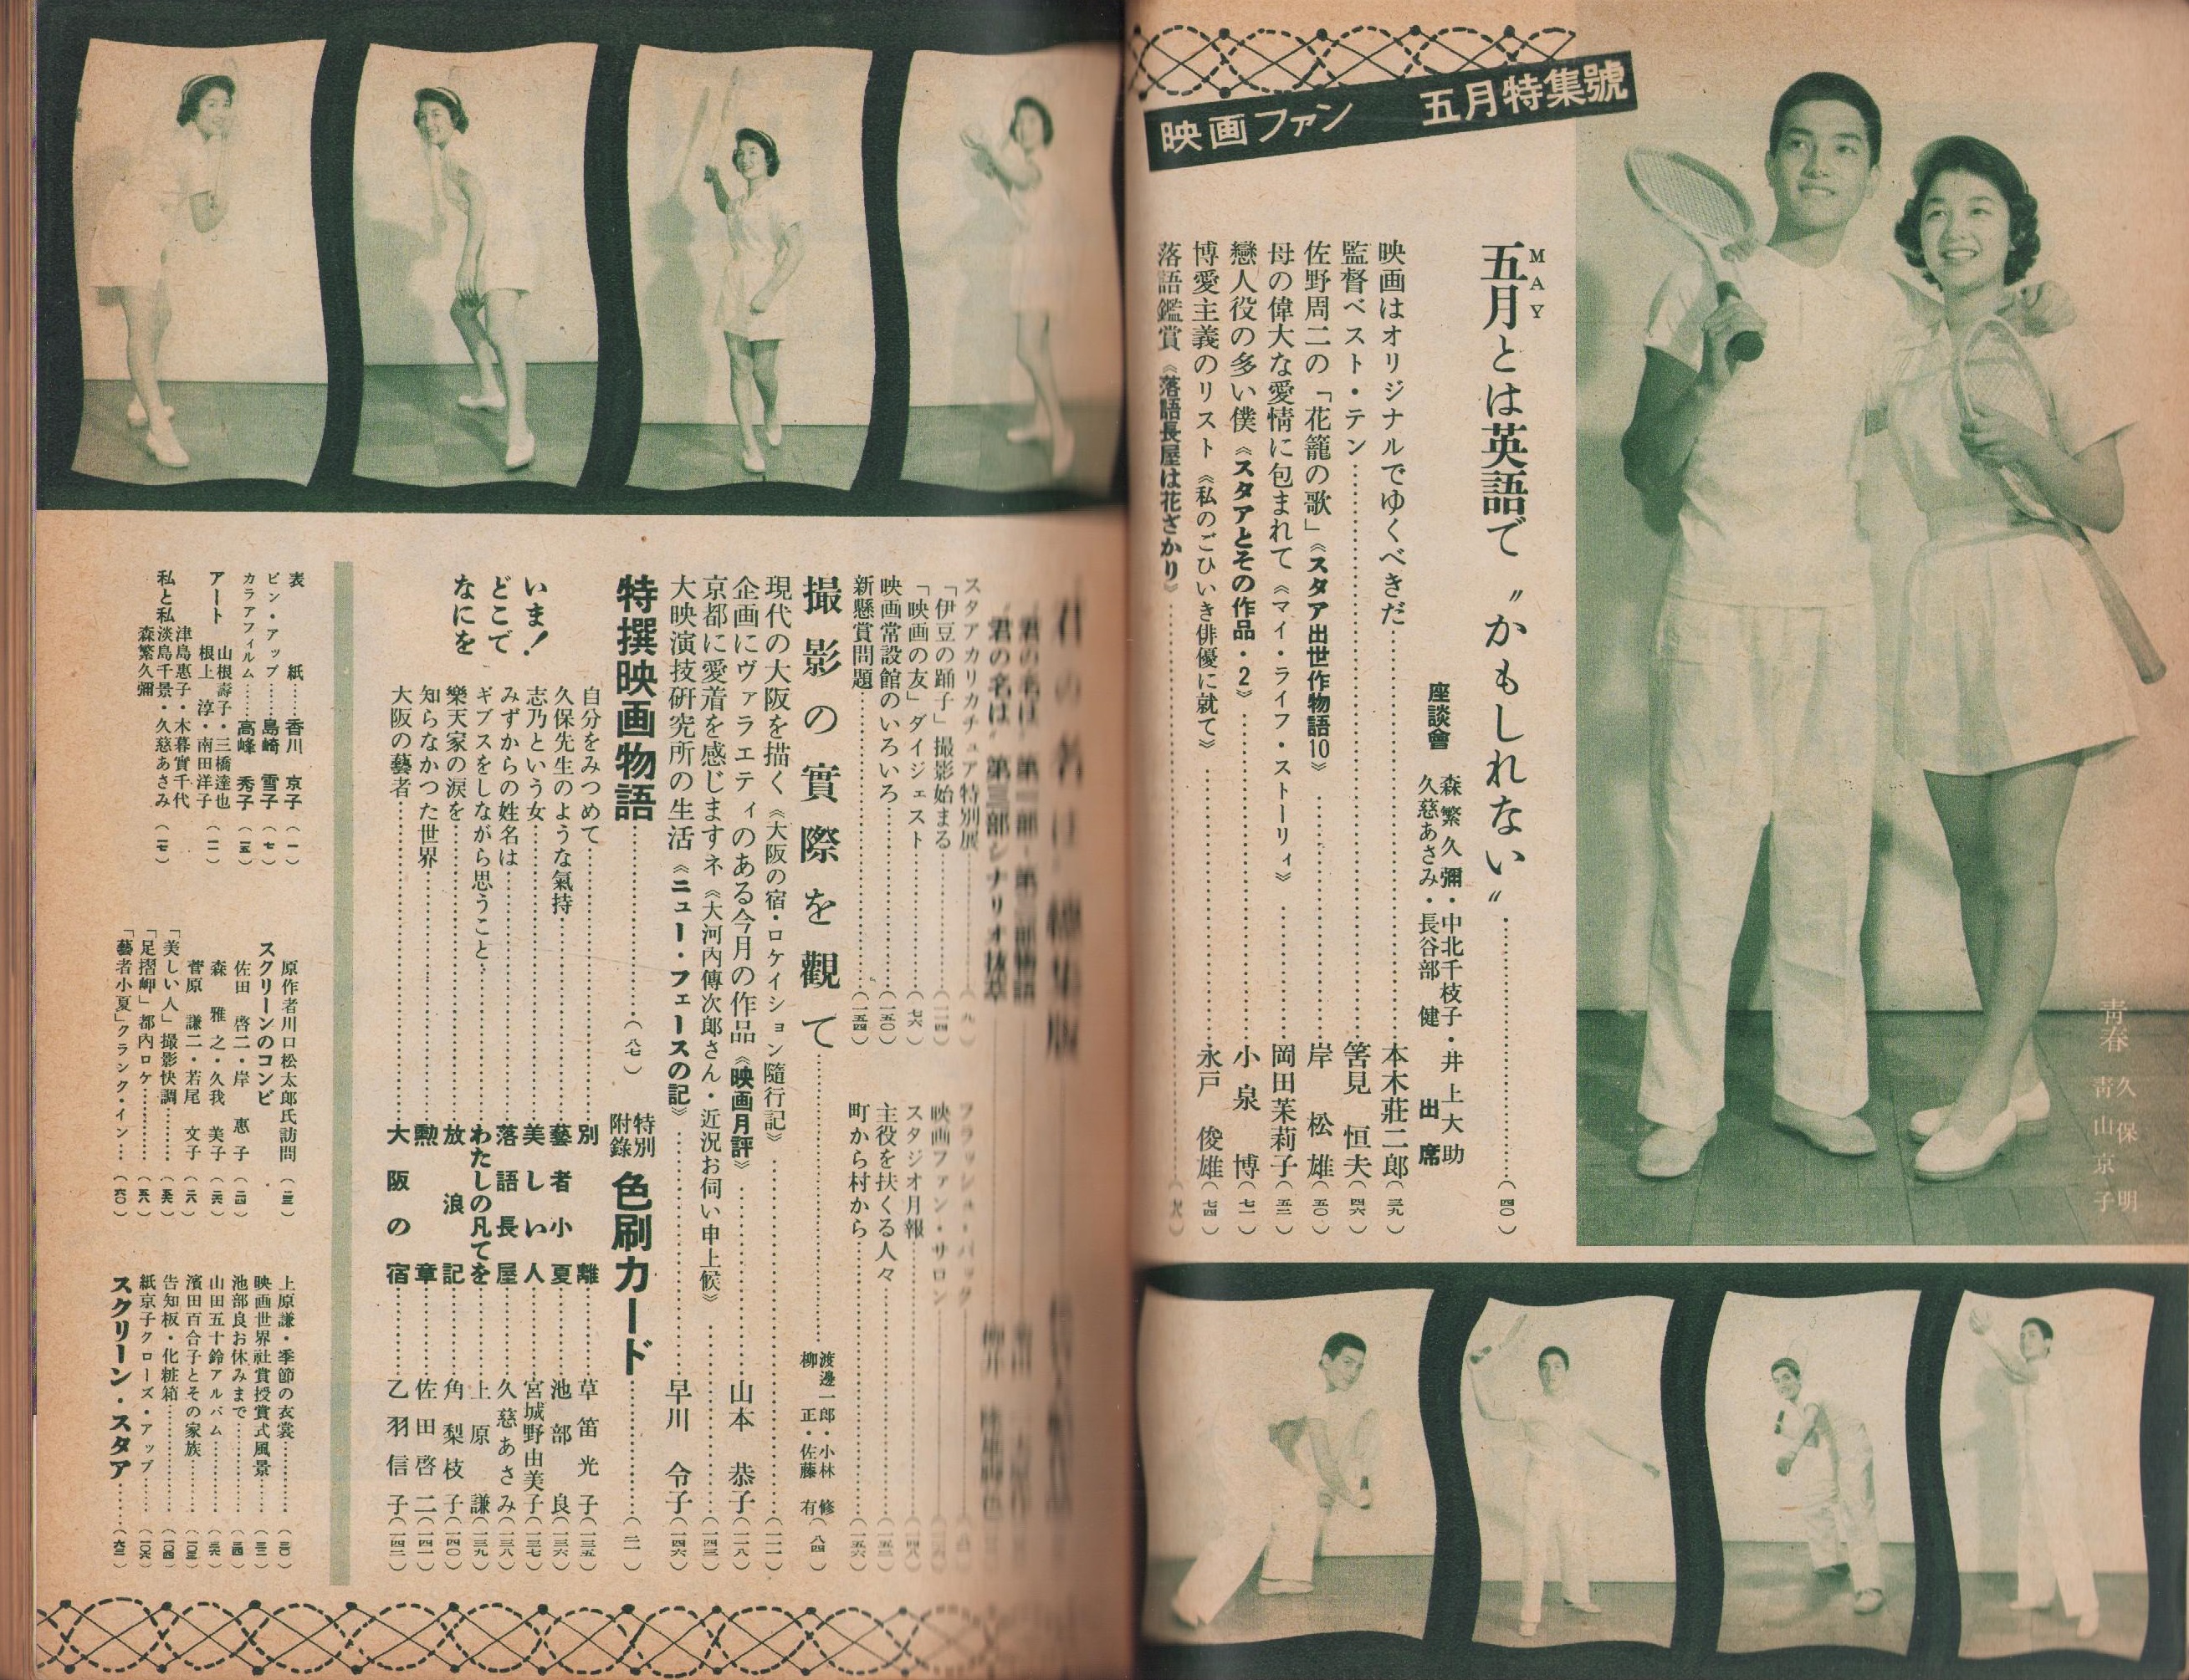 映画ファン 五月特集號
青春
久保明
青山京子
五月とは英語で〝かもしれない〟……(四〇)
MAY
座談會 森繁久彌・中北千枝子・井上大助
久慈あさみ・長谷部健 出席
映画はオリジナルでゆくべきだ……本木莊二郎(三九)
監督ベスト・テン……筈見恒夫(四六)
佐野周二の「花籠の歌」《スタア出世作物語10》……岸松雄(五〇)
母の偉大な愛情に包まれて《マイ・ライフ・ストーリィ》……岡田茉莉子(五二)
戀人役の多い僕《スタアとその作品・2》……小泉博(七一)
博愛主義のリスト《私のごひいき俳優に就て》……永戸俊雄(七四)
落語鑑賞《落語長屋は花ざかり》……
君の名は
君の名は 第三部シナリオ抜萃
スタアカリカチュア特別展……
「伊豆の踊子」撮影始まる……(一一四)
「映画の友」ダイジェスト……(七六)
映画常設館のいろいろ……(一五〇)
新懸賞問題……(一五四)
フラッシュ・バック……
映画ファン・サロン……
スタジオ月報……(一四八)
主役を扶くる人々……(一五二)
町から村から……(一五六)
撮影の實際を觀て……渡邊一郎・小林修
柳正・佐藤有(八四)
現代の大阪を描く《大阪の宿・ロケイション隨行記》……(一一一)
企画にヴァラエティのある今月の作品《映画月評》……山本恭子(一一八)
京都に愛着を感じますネ《大河内傳次郎さん・近況お伺い申上候》……(一四三)
大映演技研究所の生活《ニュー・フェースの記》……早川令子(一四六)
特撰映画物語……(八七)
特別附錄 色刷カード……(二一)
いま!
どこで
なにを
自分をみつめて……別離……草笛光子(一三五)
久保先生のような氣持……藝者小夏……池部良(一三六)
志乃という女……美しい人……宮城野由美子(一三七)
みずからの姓名は……落語長屋……久慈あさみ(一三八)
ギブスをしながら思うこと……わたしの凡てを……上原謙(一三九)
樂天家の涙を……放浪記……角梨枝子(一四〇)
知らなかつた世界……勲章……佐田啓二(一四一)
大阪の藝者……大阪の宿……乙羽信子(一四二)
表紙……香川京子(一)
ピン・アップ……島崎雪子(七)
カラアフィルム……高峰秀子(一五)
アート 山根壽子・三橋達也
根上淳・南田洋子(一一)
私と私 津島惠子・木暮實千代
淡島千景・久慈あさみ
森繁久彌(一七)
原作者川口松太郎氏訪問(二三)
スクリーンのコンビ
佐田啓二・岸惠子(二四)
森雅之・久我美子(二六)
菅原謙二・若尾文子(二八)
「美しい人」撮影快調……(五六)
「足摺岬」都內ロケ……(五八)
「藝者小夏」クランク・イン……(六〇)
上原謙・季節の衣裳……(三〇)
映画世界社賞授賞式風景……(三二)
池部良お休みまで……(三四)
山田五十鈴アルバム……(三六)
濱田百合子とその家族……(一〇三)
告知板・化粧箱……(一〇四)
紙京子クローズ・アップ……(一〇六)
スクリーン・スタア……(六二)